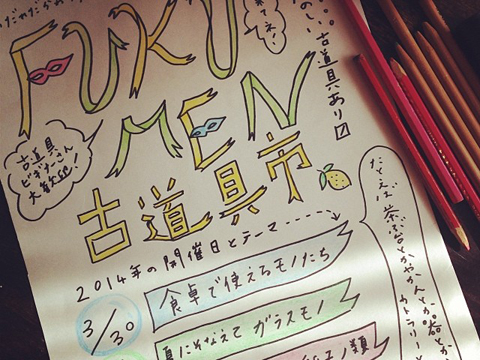 来てネ!
FUKU
MEN
古道具市
のし、古道具あり〼
古道具
ビギナーさん
大歓迎!
2014年の開催日とテーマ
3/30
食卓で使えるモノたち
夏にそなえてガラスモノ
たとえば茶ぶ台とかやかんとか器とか
カトラリー